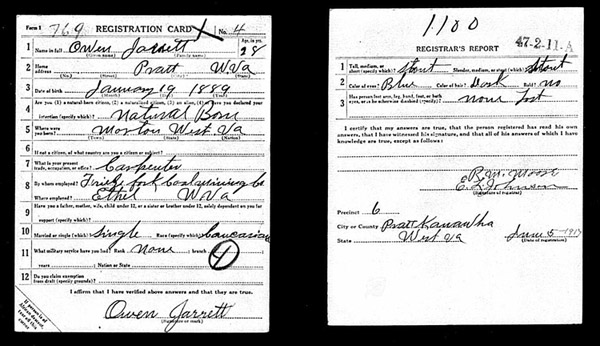 Form 1 769 REGISTRATION CARD X No. 4
1 Name in full Owen Jarrett Age, in yrs. 28
(Given name) (Family name)
2 Home address Pratt W Va
(No.) (Street) (City) (State)
3 Date of birth January 19 1889
(Month) (Day) (Year)
4 Are you (1) a natural-born citizen, (2) a naturalized citizen, (3) an alien, (4) or have you declared your
intention (specify which)? Natural Born
5 Where were you born? West Va
(Town) (State) (Nation)
6 If not a citizen, of what country are you a citizen or subject?
7 What is your present trade, occupation, or office? Carpenter
8 By whom employed? fork Coal mining Co
Where employed? Ethel W Va
9 Have you a father, mother, wife, child under 12, or a sister or brother under 12, solely dependent on you for
support (specify which)?
10 Married or single (which)? Single Race (specify which)? Caucasian
11 What military service have you had? Rank None ; branch 4
years ; Nation or State
12 Do you claim exemption
from draft (specify grounds)?
I affirm that I have verified above answers and that they are true.
Owen Jarrett
(Signature or mark)
1180
REGISTRAR'S REPORT 47-2-11.A
1 Tall, medium, or short (specify which)? Stout Slender, medium, or stout (which)? Stout
2 Color of eyes? Blue Color of hair? Dark Bald? no
3 Has person lost arm, leg, hand, foot, or both
eyes, or is he otherwise disabled (specify)? none lost
I certify that my answers are true, that the person registered has read his own
answers, that I have witnessed his signature, and that all of his answers of which I have
knowledge are true, except as follows:
E. L. Johnson
(Signature of registrar)
Precinct 6
City or County Pratt Kanawha
State West Va June 5-1917
(Date of registration)